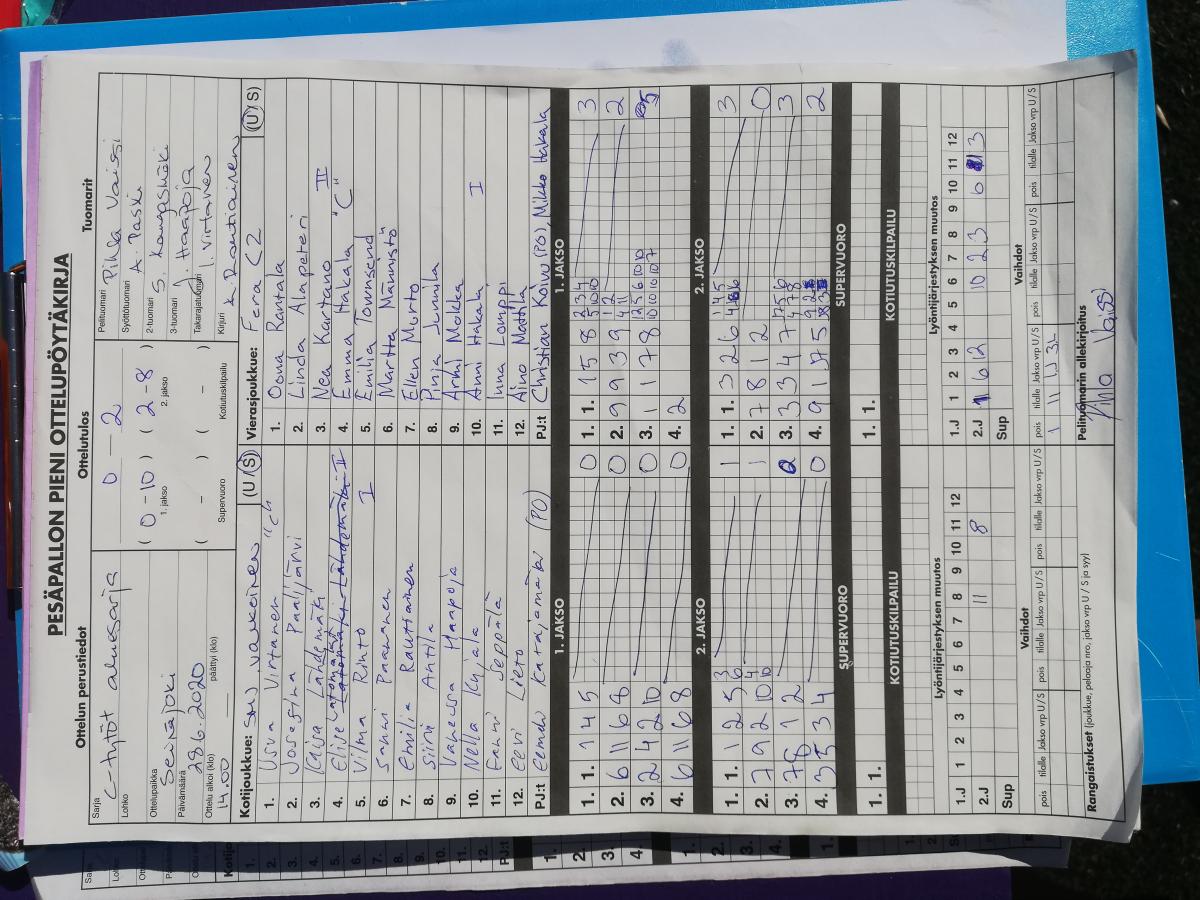 PESÄPALLON PIENI OTTELUPÖYTÄKIRJA
Ottelun perustiedot
Sarja C-tytöt aluesarja
Lohko
Ottelupaikka Seinäjoki
Päivämäärä 28.6.2020
Ottelu alkoi (klo) 14.00 päättyi (klo)
Ottelutulos
0 – 2
( 0-10 ) ( 2-8 )
1. jakso 2. jakso
( – ) ( – )
Supervuoro Kotiutuskilpailu
Tuomarit
Pelituomari Pihla Väissi
Syöttötuomari A. Paski
2-tuomari S. Kangasmäki
3-tuomari J. Haapoja
Takarajatuomari J. Virtanen
Kirjuri A. Rautiainen
Kotijoukkue: SMJ valkoinen (U / S)
1. Usva Virtanen "C"
2. Josefina Paalijärvi
3. Kaisa Lähdemäki
4. Elise Latomäki Lähdemäki II
5. Vilma Rinto I
6. Sanni Paananen
7. Emilia Rautiainen
8. Siiri Antila
9. Vanessa Haapoja
10. Nella Kujala
11. Fanni Seppälä
12. Eevi Lieto
PJ:t Eemeli Katajamäki (PO)
Vierasjoukkue: Fera C2 (U / S)
1. Oona Rantala
2. Linda Alapeteri
3. Nea Kartano II
4. Emma Hakala "C"
5. Emilia Townsend
6. Martta Männistö
7. Ellen Nurto
8. Pinja Junnila
9. Armi Mokka
10. Anni Hakala I
11. Inna Lamppi
12. Aino Mattila
PJ:t Christian Koivu (PO), Mikko Hakala
1. JAKSO
1. 1. 1 4 5 0
2. 6 11 6 8 0
3. 2 4 2 10 0
4. 6 11 6 8 0
1. JAKSO
1. 1. 1 5 8 2 3 4 5 10 10 3
2. 9 9 3 9 1 2 4 11 2
3. 1 1 7 8 12 5 6 10 10 10 10 10 7 5
4. 2
2. JAKSO
1. 1. 1 2 5 3 6 1
2. 7 9 2 10 4 10 1
3. 7 1 2 0
4. 3 5 3 4 0
2. JAKSO
1. 1. 3 2 6 1 4 5 4 6 6 3
2. 7 8 1 2 0
3. 3 3 4 7 1 5 6 4 7 8 3
4. 9 1 5 9 2 2
SUPERVUORO
1. 1.
SUPERVUORO
1. 1.
KOTIUTUSKILPAILU
KOTIUTUSKILPAILU
Lyöntijärjestyksen muutos
1 2 3 4 5 6 7 8 9 10 11 12
1.J
2.J 11 8
Sup
Lyöntijärjestyksen muutos
1 2 3 4 5 6 7 8 9 10 11 12
1.J
2.J 1 6 12 10 2 3 6 3
Sup
Vaihdot
pois tilalle Jakso vrp U / S pois tilalle Jakso vrp U / S pois tilalle Jakso vrp U / S
Vaihdot
pois tilalle Jakso vrp U / S pois tilalle Jakso vrp U / S pois tilalle Jakso vrp U / S
1 11 1.
Rangaistukset (joukkue, pelaaja nro, jakso vrp U / S ja syy)
Pelituomarin allekirjoitus
Pihla Väissi